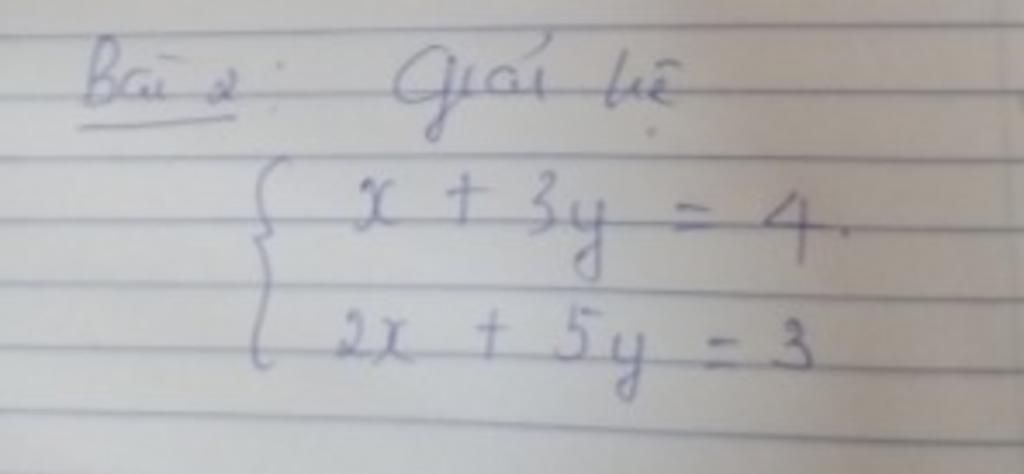 Bài 2: Giải hệ
{ x + 3y = 4.
2x + 5y = 3